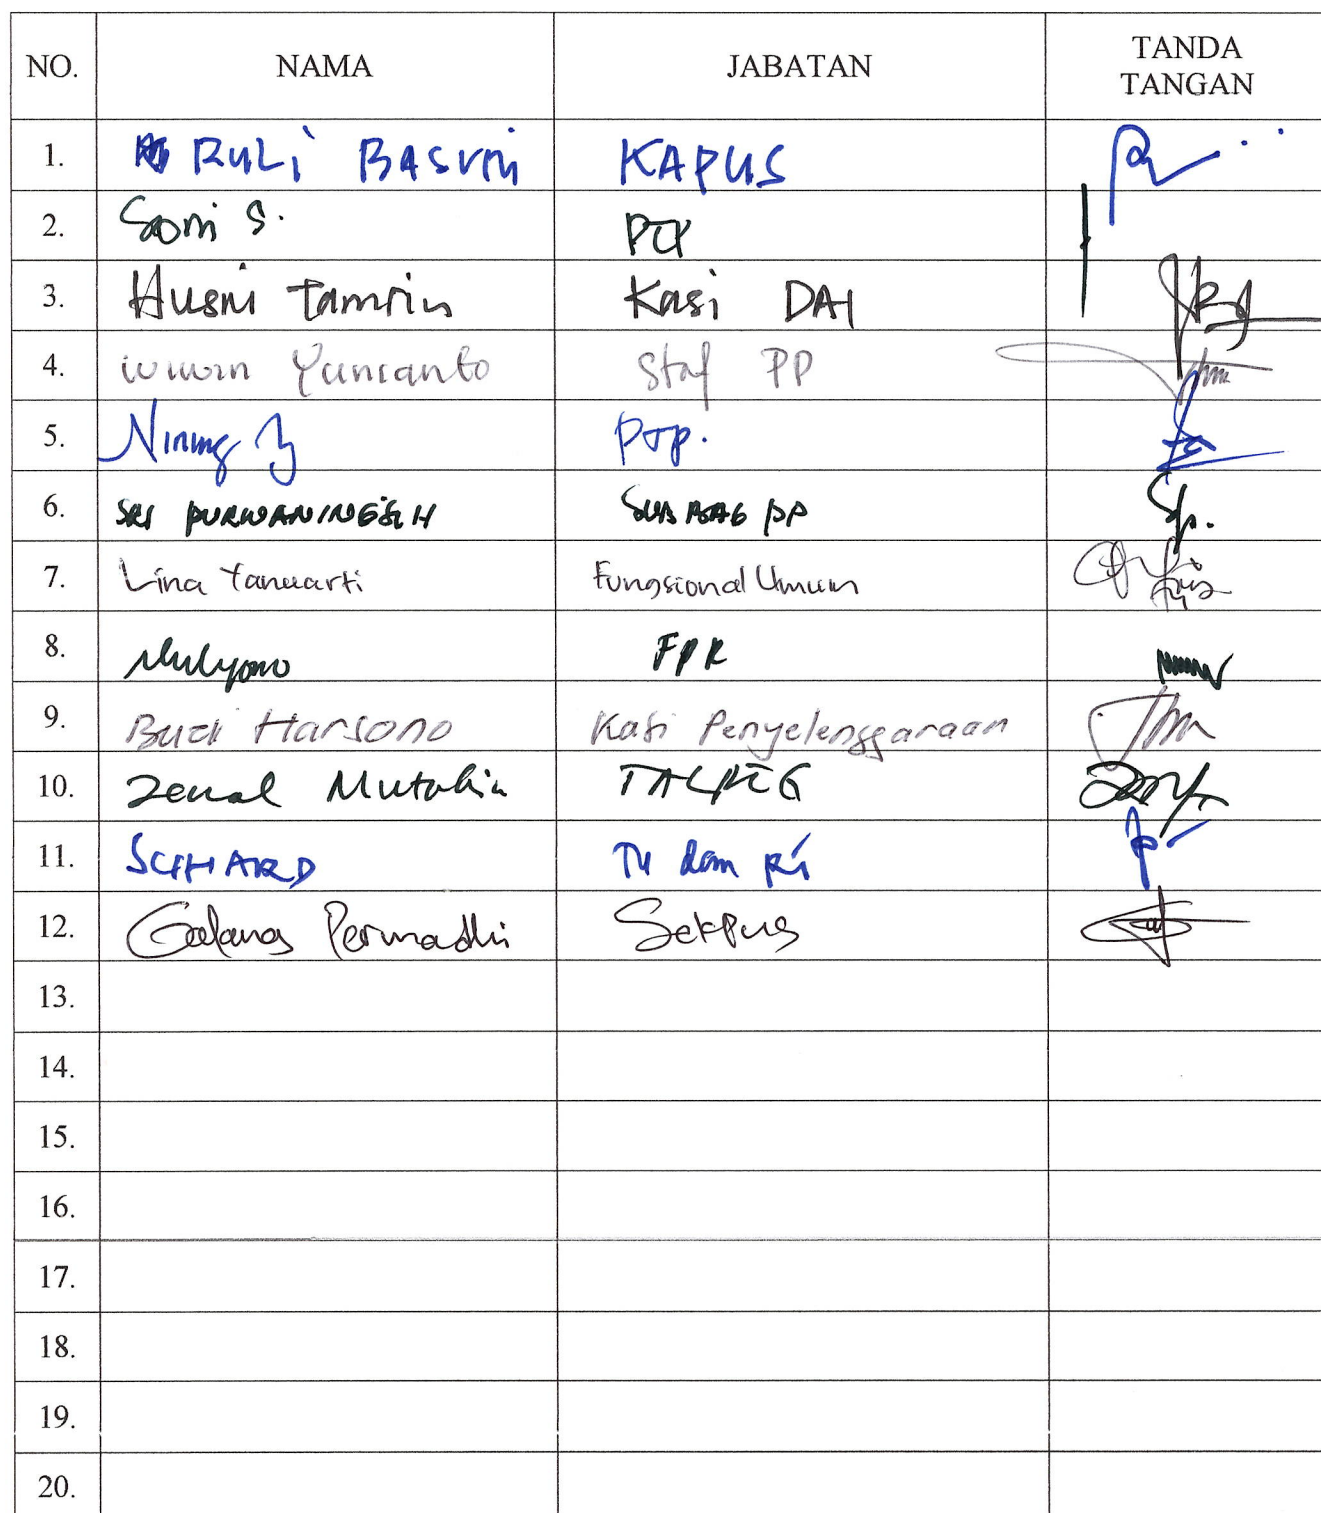 NO. NAMA JABATAN TANDA TANGAN
1. RULI BASUNI KAPUS
2. Soni S. PTP
3. Husni Tamrin Kasi DAI
4. Wiwin Yunianto Staf PP
5. Nining PTP.
6. SRI PURWANINGSIH SUBBAG PP
7. Lina Yanuarti Fungsional Umum
8. Mulyono FPK
9. Budi Harsono Kasi Penyelenggaraan
10. Zenal Mutakin
11. SUHARD TU dan
12. Galang Permadhi Sekpus
13.
14.
15.
16.
17.
18.
19.
20.